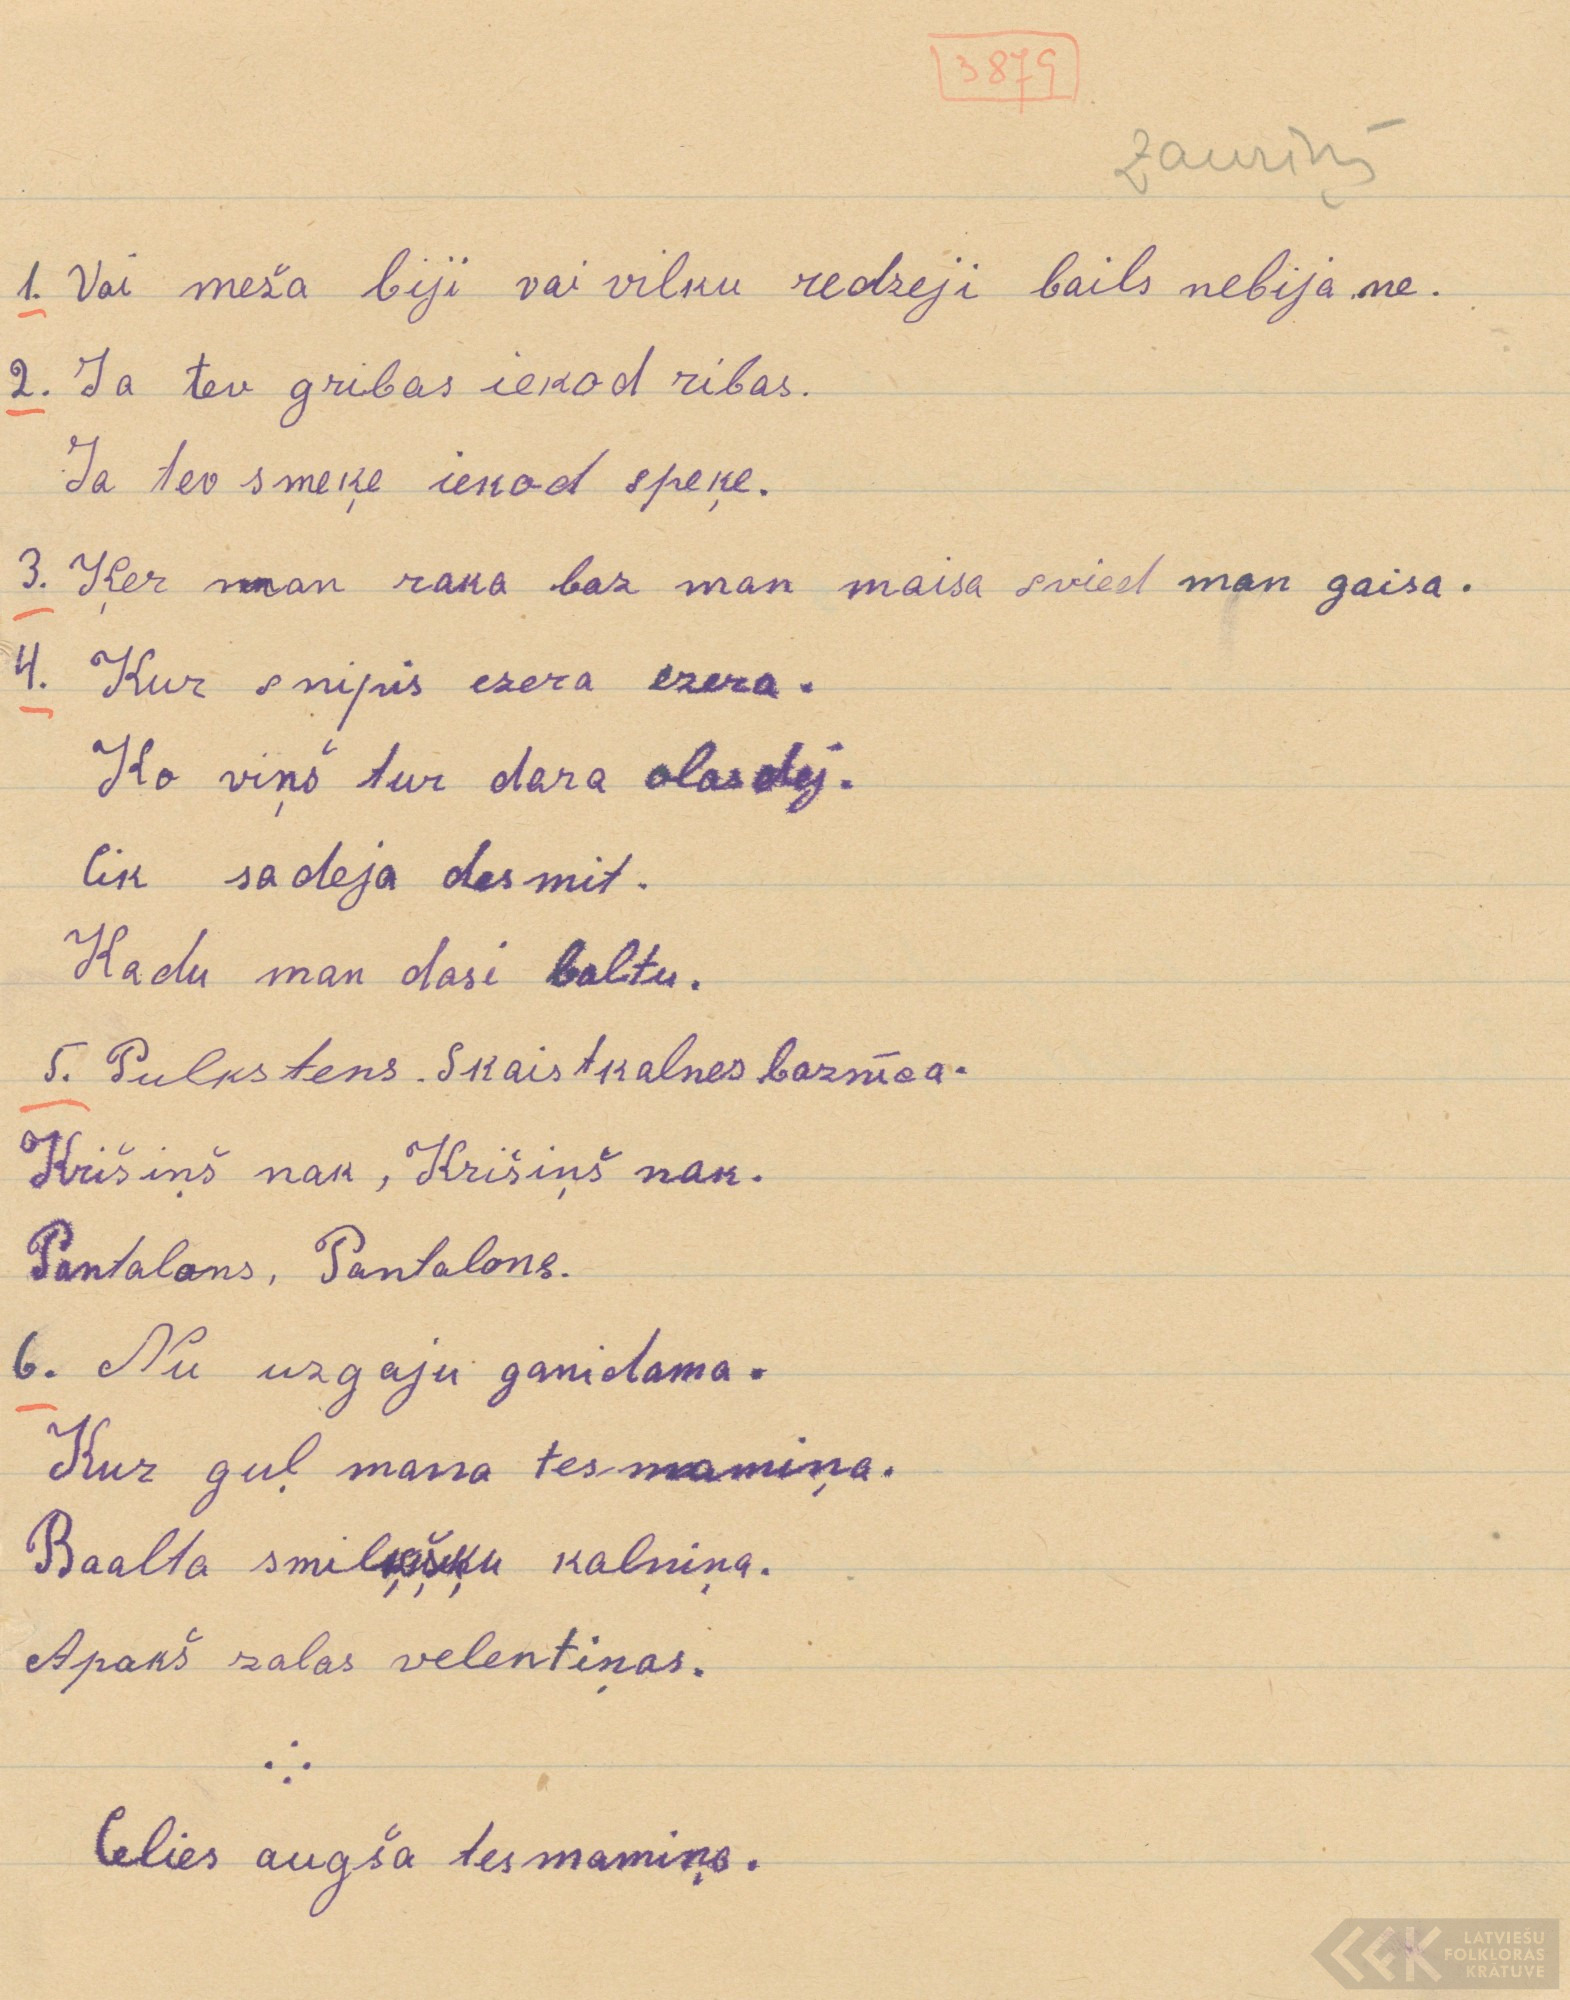 3879
Zauriņš
1. Vai meža biji vai vilku redzeji bails nebija ne.
2. Ja tev gribas iekod ribas.
Ja tev smeķe iekod speķe.
3. Ķer man raka baz man maisa svied man gaisa.
4. Kur snipis ezera ezera.
Ko viņš tur dara olas dēj.
Cik sadeja desmit.
Kadu man dasi baltu.
5. Pulkstens. Skaistkalnes baznīca.
Krišiņš nak, Krišiņš nak.
Pantalons, Pantalons.
6. Nu uzgaju ganidama.
Kur guļ mana tesmamiņa.
Baalta kalniņa.
Apakš zalas velentiņas.
Celies augša tesmamiņa.
LATVIEŠU
FOLKLORAS
KRĀTUVE